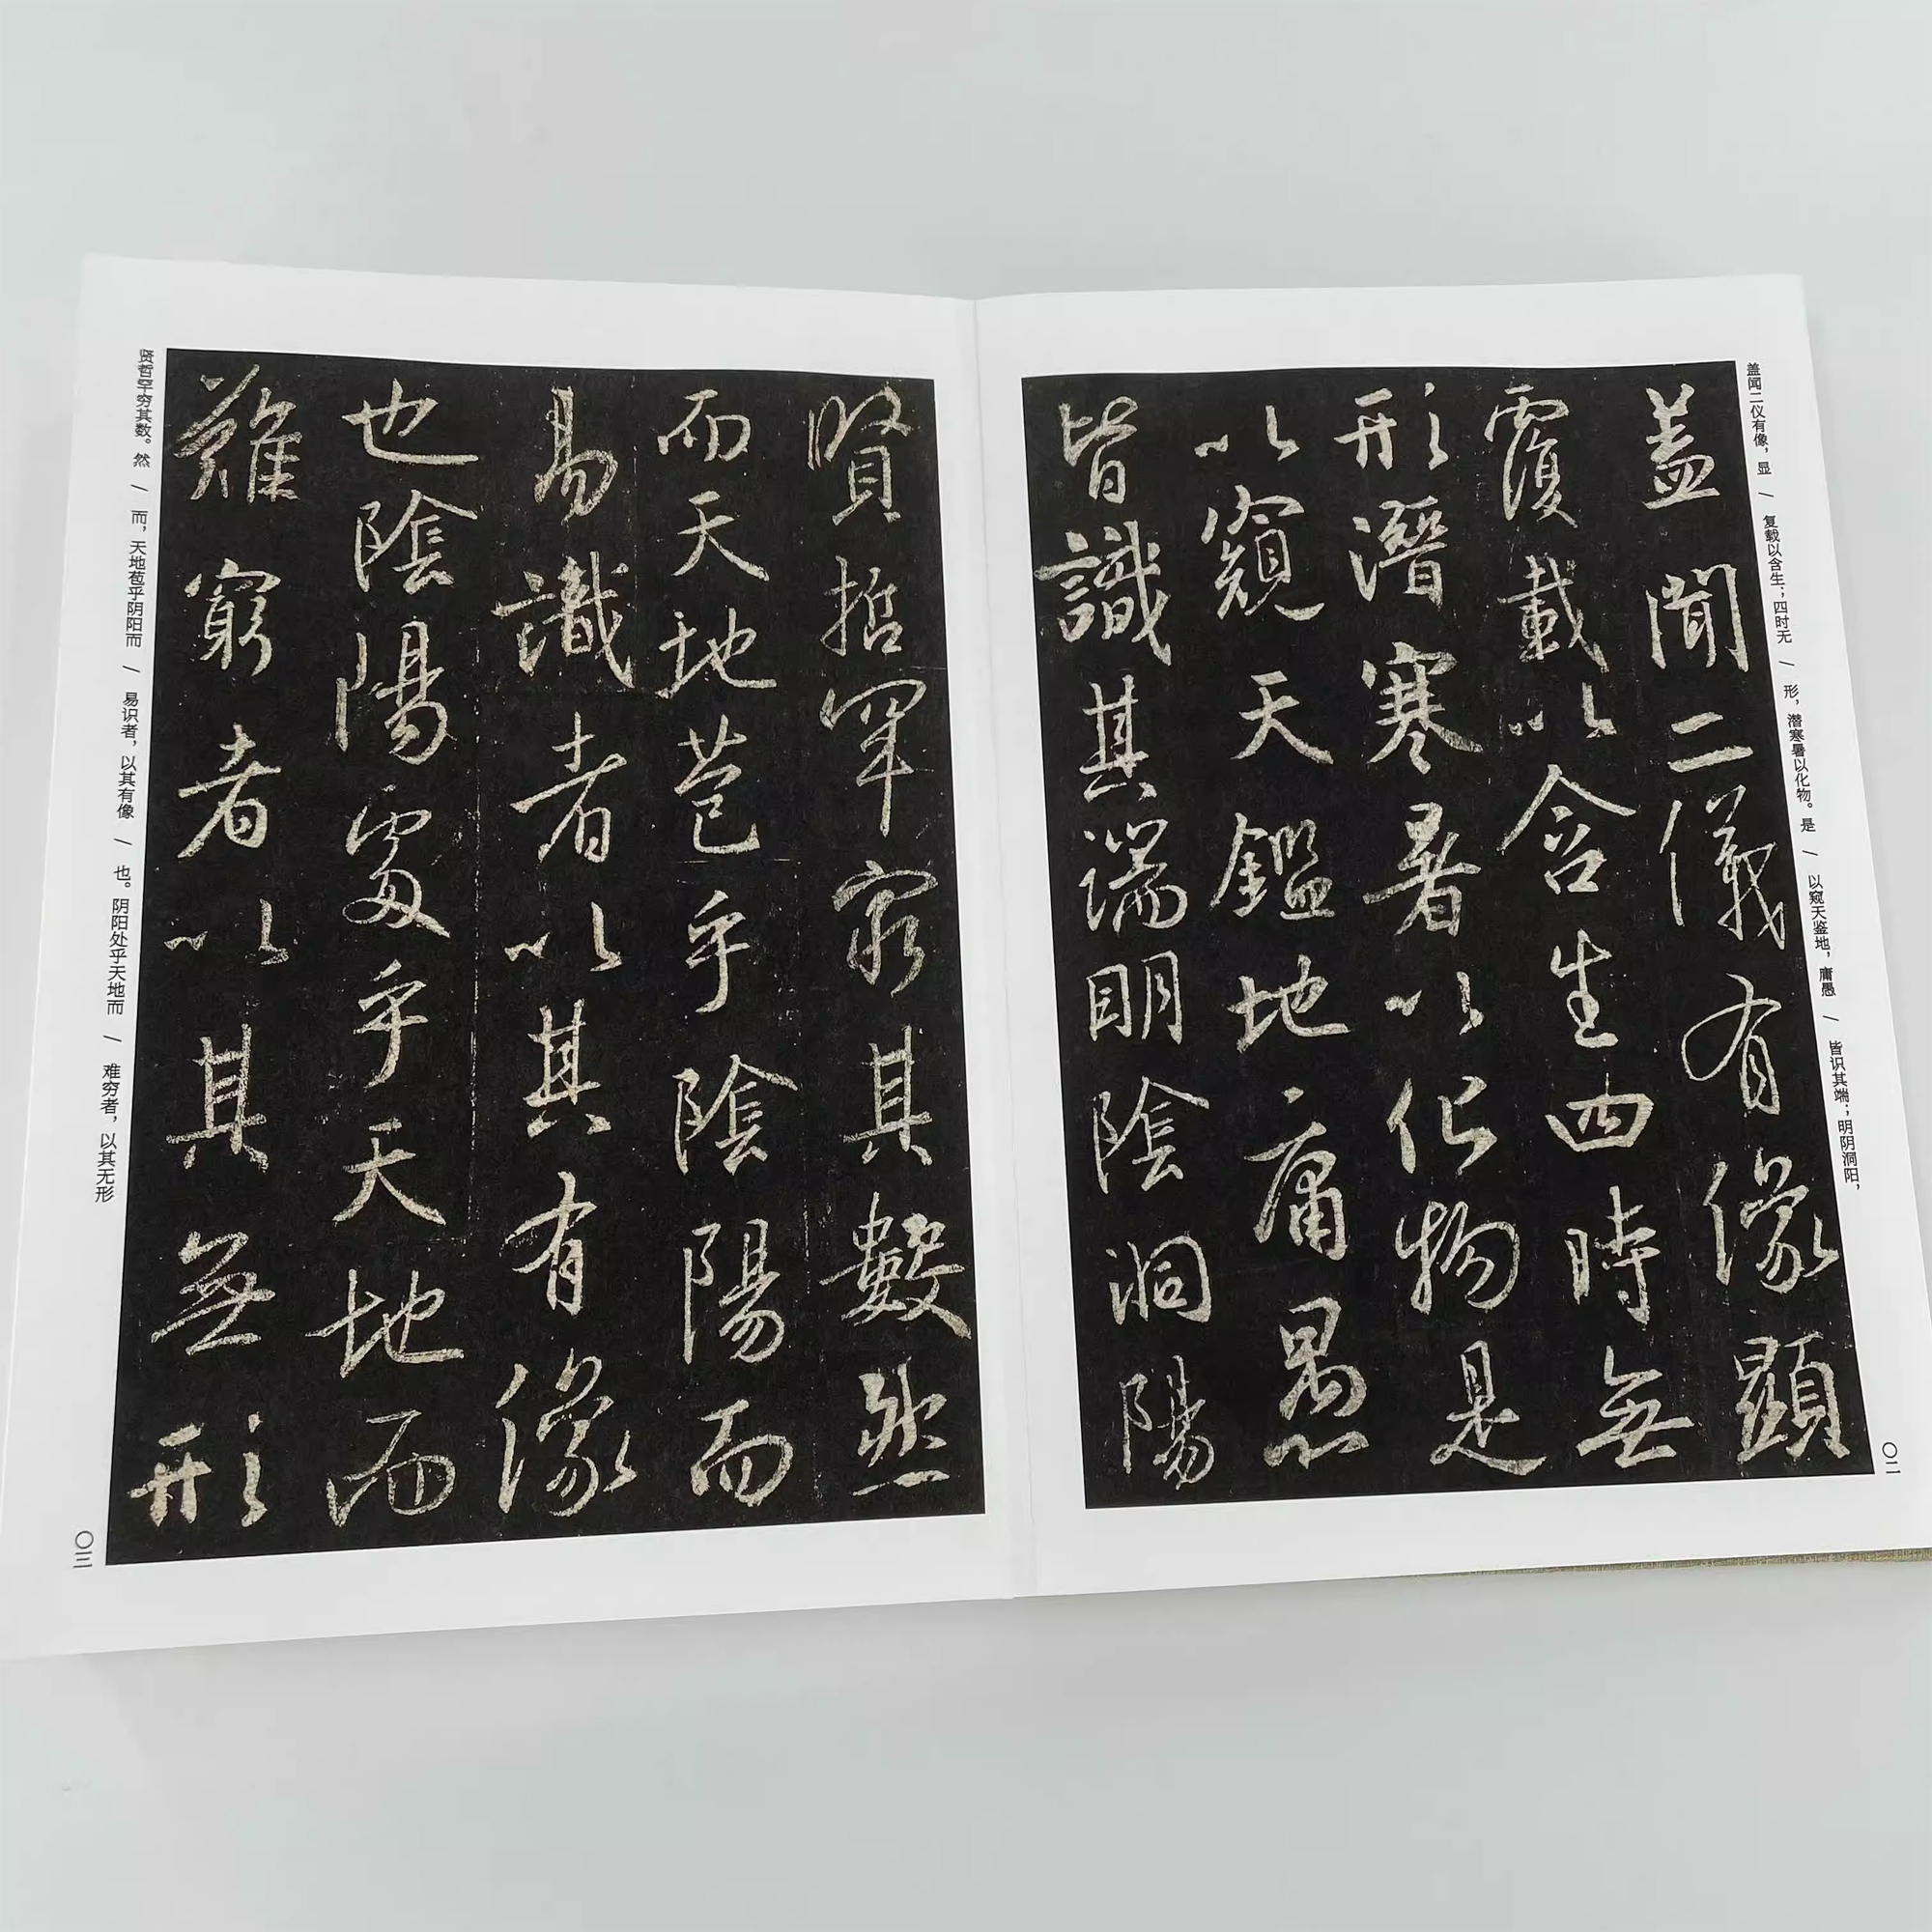 盖闻二仪有像，显 / 复载以含生；四时无 / 形，潜寒暑以化物。是 / 以窥天鉴地，庸愚 / 皆识其端；明阴洞阳，
蓋聞二儀有像顯
覆載以含生四時無
形潛寒暑以化物是
以窺天鑑地庸愚
皆識其端明陰洞陽
〇二
賢哲罕窮其數然
而天地苞乎陰陽而
易識者以其有像
也陰陽處乎天地而
難窮者以其無形
贤哲罕穷其数。然 / 而，天地苞乎阴阳而 / 易识者，以其有像 / 也。阴阳处乎天地而 / 难穷者，以其无形
〇三